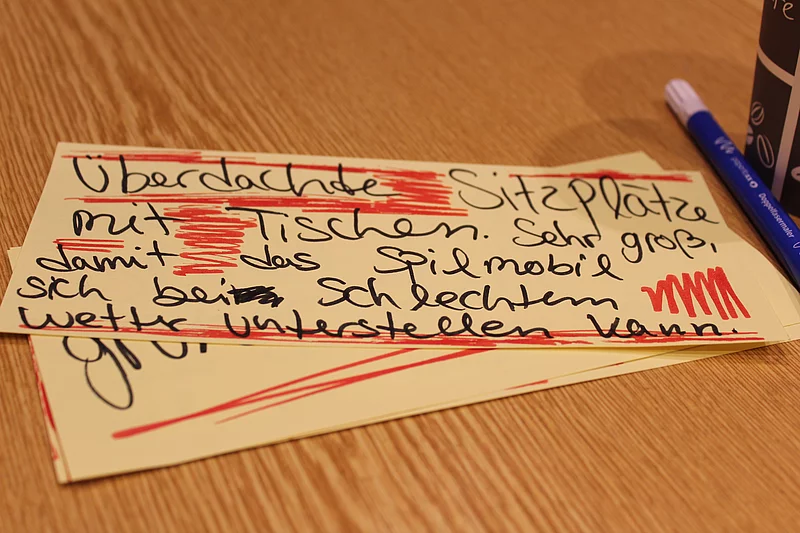 Überdachte Sitzplätze
mit Tischen. Sehr groß,
damit das Spilmobil
sich bei Schlechtem
wetter unterstellen kann.